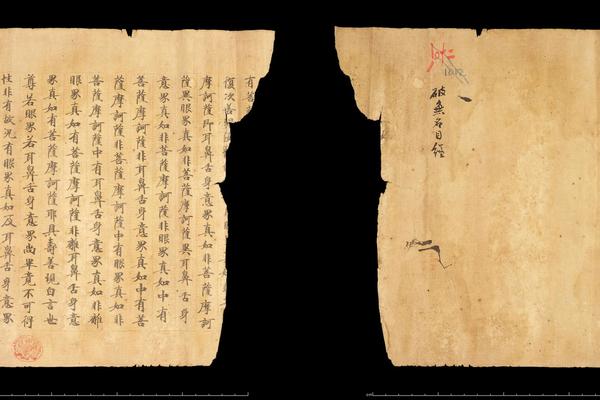 破無名目經
有菩
復次善
摩訶薩即耳鼻舌身意界真如非菩薩摩訶
薩異眼界真如非菩薩摩訶薩異耳鼻舌身
意界真如非菩薩摩訶薩非眼界真如中有
菩薩摩訶薩非耳鼻舌身意界真如中有菩
薩摩訶薩非菩薩摩訶薩中有眼界真如非
菩薩摩訶薩中有耳鼻舌身意界真如非離
眼界真如有菩薩摩訶薩非離耳鼻舌身意
界真如有菩薩摩訶薩耶具壽善現白言世
尊若眼界若耳鼻舌身意界尚畢竟不可得
性非有故況有眼界真如及耳鼻舌身意界